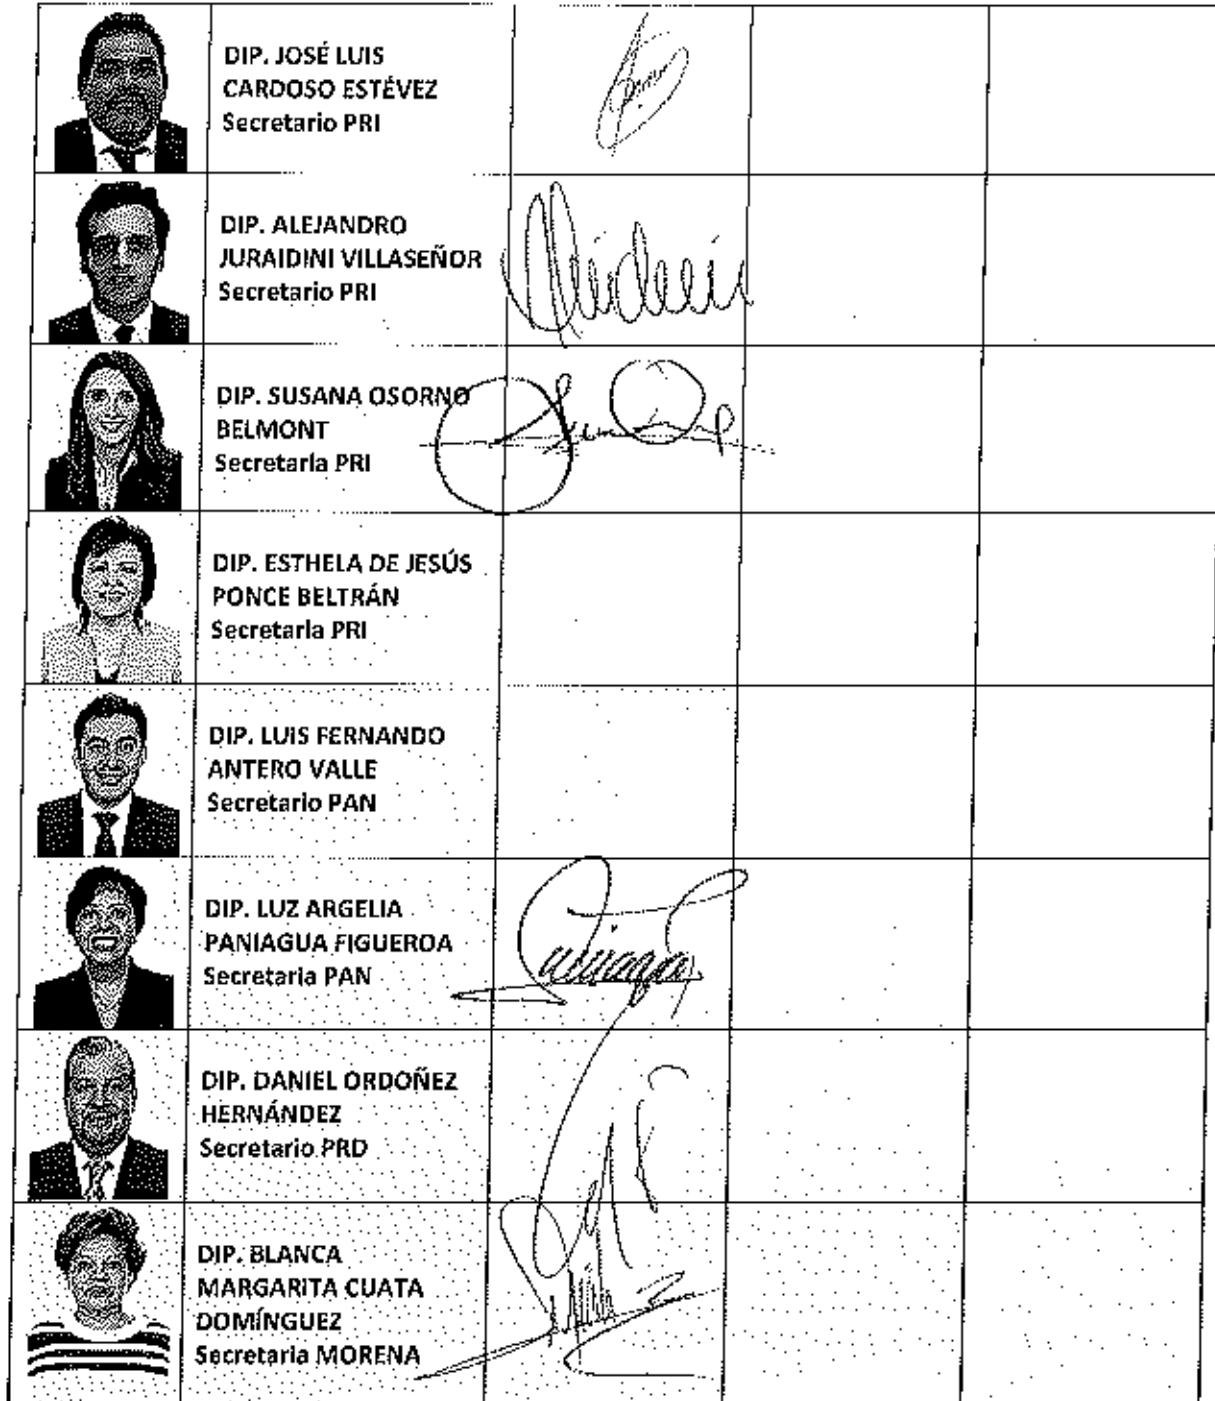 DIP. JOSÉ LUIS
CARDOSO ESTÉVEZ
Secretario PRI
DIP. ALEJANDRO
JURAIDINI VILLASEÑOR
Secretario PRI
DIP. SUSANA OSORNO
BELMONT
Secretaria PRI
DIP. ESTHELA DE JESÚS
PONCE BELTRÁN
Secretaria PRI
DIP. LUIS FERNANDO
ANTERO VALLE
Secretario PAN
DIP. LUZ ARGELIA
PANIAGUA FIGUEROA
Secretaria PAN
DIP. DANIEL ORDOÑEZ
HERNÁNDEZ
Secretario PRD
DIP. BLANCA
MARGARITA CUATA
DOMÍNGUEZ
Secretaria MORENA